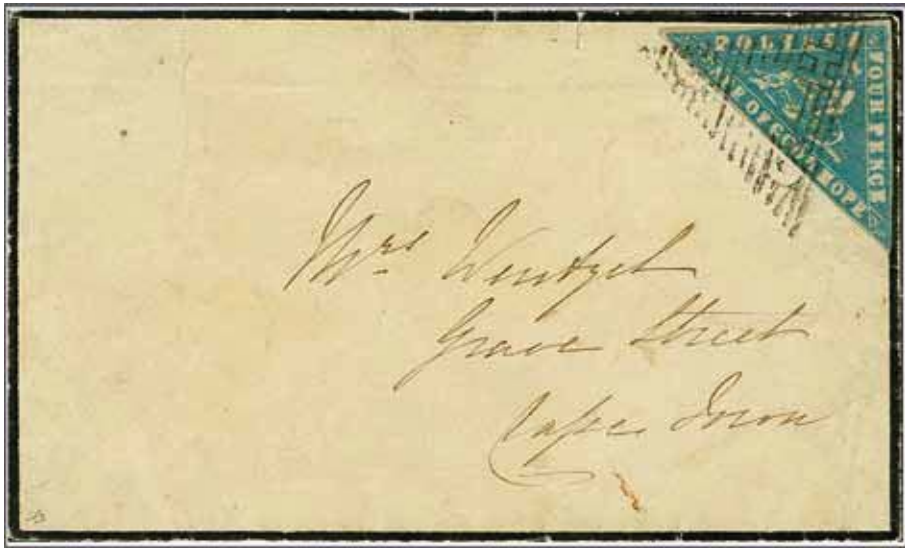 FOUR PENCE
OF GOOD HOPE
Mrs Wentzel
Grave Street
Cape Town